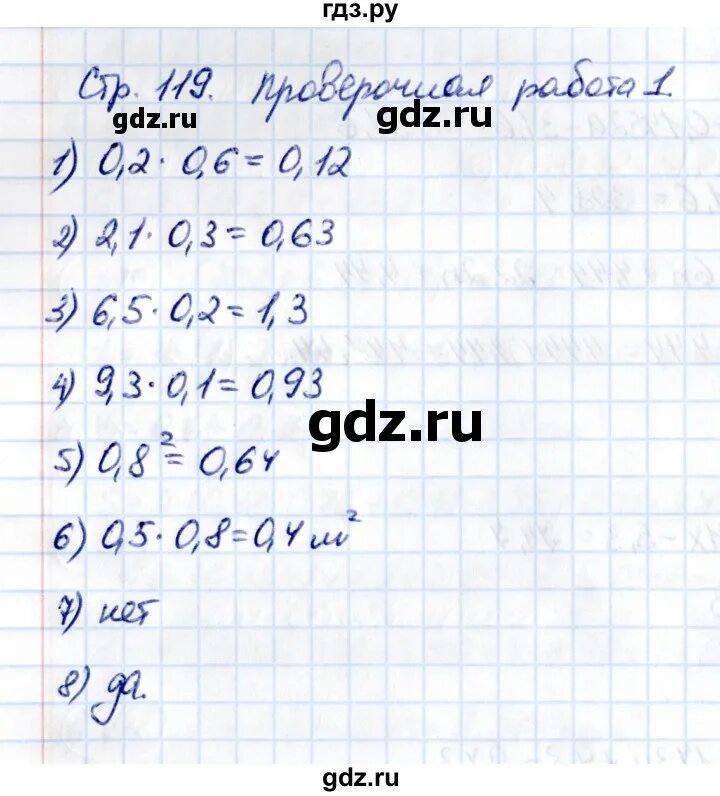 гдз.ру
Стр. 119. Проверочная работа 1.
gdz.ru gdz.ru
1) 0,2 · 0,6 = 0,12
2) 2,1 · 0,3 = 0,63
3) 6,5 · 0,2 = 1,3
4) 9,3 · 0,1 = 0,93
gdz.ru
5) 0,8² = 0,64
6) 0,5 · 0,8 = 0,4 м²
7) нет
8) да.
gdz.ru